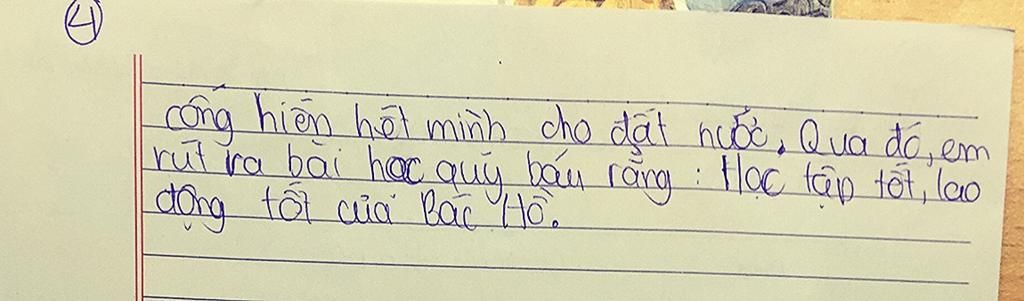 4
cống hiến hết mình cho đất nước. Qua đó, em
rút ra bài học quý báu rằng: Học tập tốt, lao
động tốt của Bác Hồ.